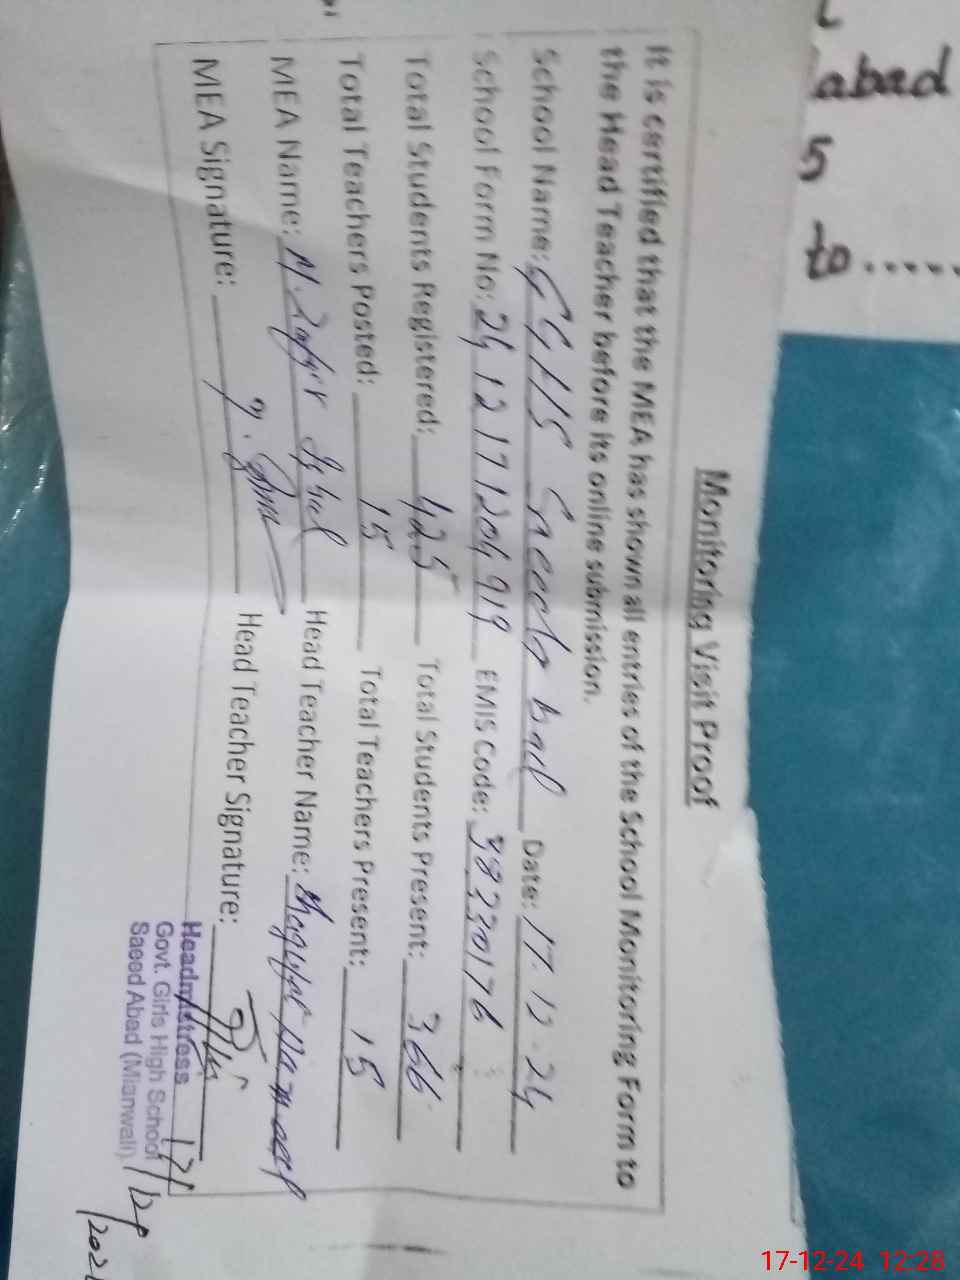 abad
5
to .....
Monitoring Visit Proof
It is certified that the MEA has shown all entries of the School Monitoring Form to
the Head Teacher before its online submission.
School Name: GGHS Saeed bad Date: 17.12.24
School Form No: 2412171204919 EMIS Code: 38230176
Total Students Registered: 425 Total Students Present: 366
Total Teachers Posted: 15 Total Teachers Present: 15
MEA Name: M. Zafar Iqbal Head Teacher Name:
MEA Signature: Head Teacher Signature:
Headmistress
Govt. Girls High School
Saeed Abad (Mianwali)
17-12-24 12:28